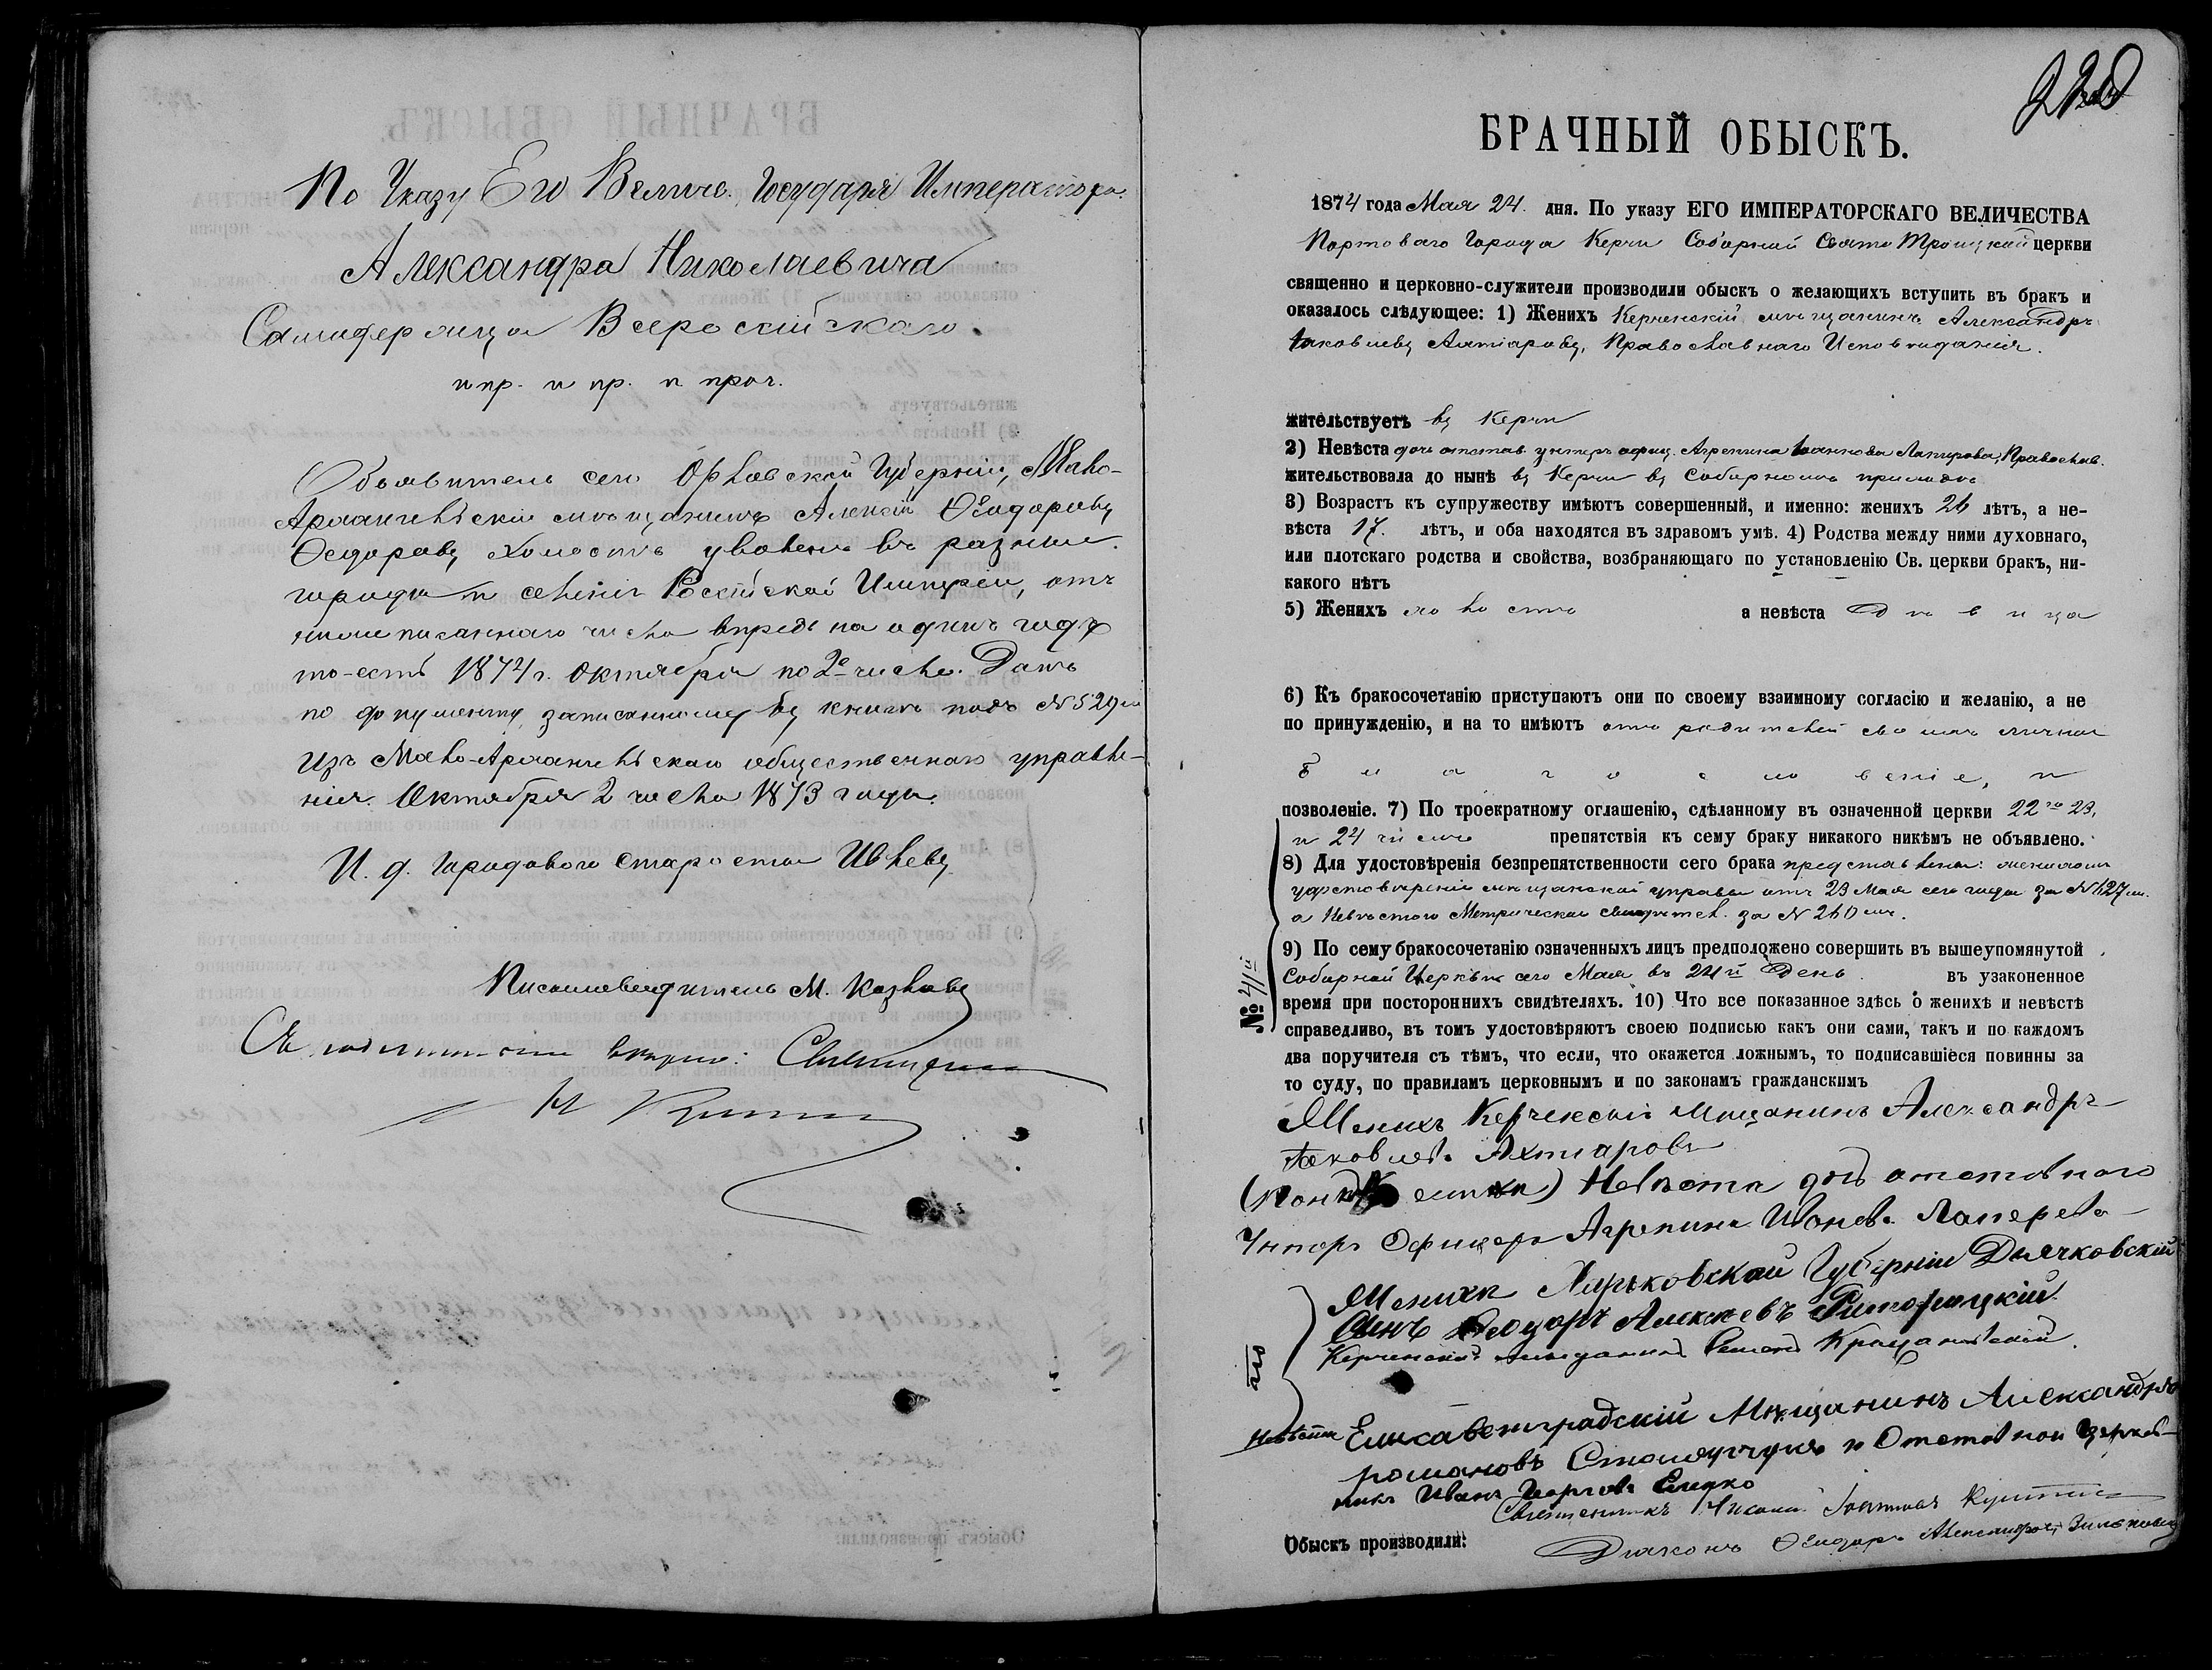 По Указу Его Величе. Государя Императора
Александра Николаевича
Самодержца Всероссійскаго
и пр. и пр. и проч.
Объявитель сего Орловской Губерніи, Мало-
Архангельскій мѣщанинъ Алексѣй Ѳеодоровъ
Ѳедоровъ холостъ уволенъ въ разные
города и селенія Россійской Имперіи, отъ
нижеписаннаго числа впредь на одинъ годъ
то-есть 1874 г. Октября по 2е число. Данъ
по документу записанному въ книгѣ подъ №529м
изъ Мало-Архангельскаго общественнаго управле-
нія. Октября 2 числа 1873 года.
И. д. Городоваго Старосты Ивлевъ
Письмоводитель М. Козловъ
Съ подлиннымъ вѣрно: Священникъ
БРАЧНЫЙ ОБЫСКЪ.
1874 года Мая 24. дня. По указу ЕГО ИМПЕРАТОРСКАГО ВЕЛИЧЕСТВА
Портоваго Города Керчи Соборной Свято Троицкой церкви
священно и церковно-служители производили обыскъ о желающихъ вступить въ бракъ и
оказалось слѣдующее: 1) Женихъ Керченскій мѣщанинъ Александръ
Іаковлевъ Ахтіаровъ, Православнаго Исповѣданія.
жительствуетъ въ Керчи
2) Невѣста дочь отстав. унтеръ офиц. Агрепина Іоаннова Лаперова, Православ.
жительствовала до нынѣ въ Керчи въ Соборномъ приходѣ
3) Возрастъ къ супружеству имѣютъ совершенный, и именно: женихъ 26 лѣтъ, а не-
вѣста 17. лѣтъ, и оба находятся въ здравомъ умѣ. 4) Родства между ними духовнаго,
или плотскаго родства и свойства, возбраняющаго по установленію Св. церкви бракъ, ни-
какого нѣтъ
5) Женихъ холостъ а невѣста Дѣвица
6) Къ бракосочетанію приступаютъ они по своему взаимному согласію и желанію, а не
по принужденію, и на то имѣютъ отъ родителей своихъ личное
благословеніе, и
позволеніе. 7) По троекратному оглашенію, сдѣланному въ означенной церкви 22го 23,
и 24 числа препятствія къ сему браку никакого никѣмъ не объявлено.
8) Для удостовѣренія безпрепятственности сего брака представлены: женихомъ
удостовѣреніе мѣщанской управы отъ 23 Мая сего года за №627м.
а Невѣстою Метрическое свидѣтел. за № 260 мъ.
9) По сему бракосочетанію означенныхъ лицъ предположено совершить въ вышеупомянутой
Соборной Церкви сего Мая въ 24й День въ узаконенное
время при постороннихъ свидѣтеляхъ. 10) Что все показанное здѣсь о женихѣ и невѣстѣ
справедливо, въ томъ удостовѣряютъ своею подписью какъ они сами, такъ и по каждомъ
два поручителя съ тѣмъ, что если, что окажется ложнымъ, то подписавшіеся повинны за
то суду, по правиламъ церковнымъ и по законамъ гражданскимъ
№ 41й
Женихъ Керченскій Мещанинъ Александръ
Яковлевъ Ахтиаровъ
Невѣста дочь отставнаго
Унторъ Офицера Агрепина Иванова Лаперова
по
Женихѣ Харьковской Губерніи Дьячковскій
Сынъ Ѳеодоръ Алексѣевъ
Керченскій мѣщанинъ
Невѣстѣ Елисаветградскій Мѣщанинъ Александръ
Романовъ и Отставной
Иванъ
Священникъ
Обыскъ производили:
Діаконъ Ѳеодоръ